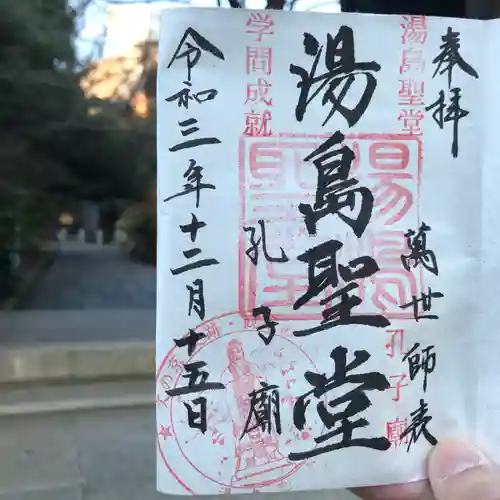 奉拝
湯島聖堂
萬世師表
孔子廟
湯島聖堂
湯島聖堂
学問成就
孔子廟
令和三年十二月十五日